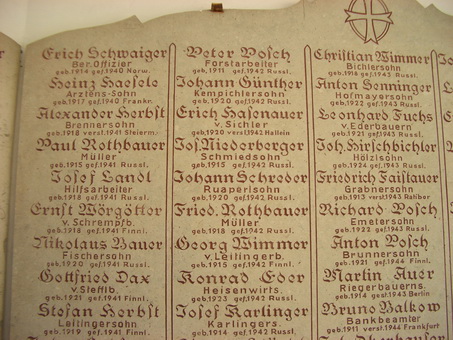 Erich Schwaiger
Ber. Offizier
geb. 1914 gef. 1940 Norw.
Heinz Haesele
Arztens-Sohn
geb. 1917 gef. 1940 Frankr.
Alexander Herbst
Brennersohn
geb. 1918 verst. 1941 Steierm.
Paul Rothbauer
Müller
geb. 1915 gef. 1941 Russl.
Josef Landl
Hilfsarbeiter
geb. 1918 gef. 1941 Russl.
Ernst Wörgötter
v. Schrempfb.
geb. 1916 gef. 1941 Finnl.
Nikolaus Bauer
Fischersohn
geb. 1920 gef. 1941 Russl.
Gottfried Dax
v. Steffib.
geb. 1921 gef. 1941 Finnl.
Stefan Herbst
Leitingersohn
geb. 1919 gef. 1941 Finnl.
Peter Posch
Forstarbeiter
geb. 1911 gef. 1942 Russl.
Johann Günther
Kempichlersohn
geb. 1920 gef. 1942 Russl.
Erich Hasenauer
v. Sichler
geb. 1920 verst. 1942 Hallein
Jos. Niederberger
Schmiedsohn
geb. 1915 gef. 1942 Russl.
Johann Schreder
Ruaperisohn
geb. 1919 gef. 1942 Russl.
Fried. Rothbauer
Müller
geb. 1918 gef. 1942 Russl.
Georg Wimmer
v. Leitingerb.
geb. 1915 gef. 1942 Finnl.
Konrad Eder
Heisenwirts.
geb. 1923 gef. 1942 Russl.
Josef Karlinger
Karlingers.
geb. 1914 gef. 1942 Russl.
Christian Wimmer
Bichlersohn
geb. 1914 gef. 1943 Russl.
Anton Henninger
Hofmayersohn
geb. 1922 gef. 1943 Russl.
Leonhard Fuchs
v. Ederbauern
geb. 1921 gef. 1943 Russl.
Joh. Hirschbichler
Hölzlsohn
geb. 1924 gef. 1943 Russl.
Friedrich Faistauer
Grabnersohn
geb. 1913 verst. 1943 Ratibor
Richard Posch
Emetersohn
geb. 1923 gef. 1943 Russl.
Anton Posch
Brunnersohn
geb. 1921 gef. 1944 Finnl.
Martin Auer
Riegerbauerns.
geb. 1914 gest. 1943 Berlin
Bruno Balkow
Bankbeamter
geb. 1911 verst. 1944 Frankfurt